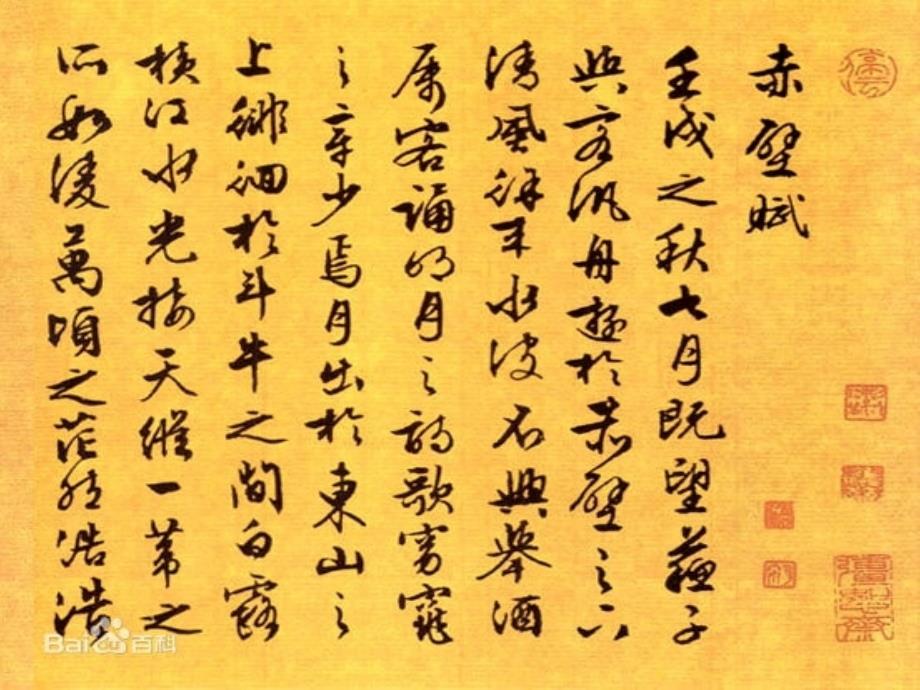 赤壁賦
壬戌之秋七月既望蘇子
與客汎舟遊於赤壁之下
清風徐来水波不興舉酒
属客誦明月之詩歌窈窕
之章少焉月出於東山之
上徘徊於斗牛之間白露
橫江水光接天縱一葦之
所如凌萬頃之茫然浩浩
Bai du 百科